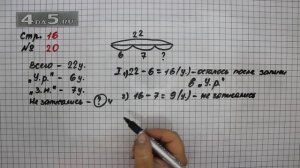 4DA5.RU
Стр. 16
№ 20
22
6 7 ?
Всего – 22у.
„У.р." – 6у.
„З.н." – 7у.
Не записались – ? у
I 1) 22 – 6 = 16 (у.) – осталось после записи
в „У.р"
2) 16 – 7 = 9 (у.) – не записались